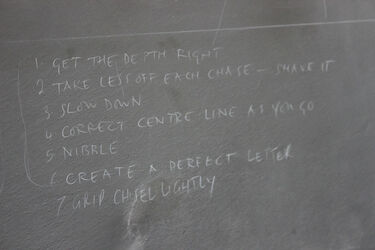 1 GET THE DEPTH RIGHT
2 TAKE LESS OFF EACH CHASE – SHAVE IT
3 SLOW DOWN
4 CORRECT CENTRE LINE AS YOU GO
5 NIBBLE
6 CREATE A PERFECT LETTER
7 GRIP CHISEL LIGHTLY